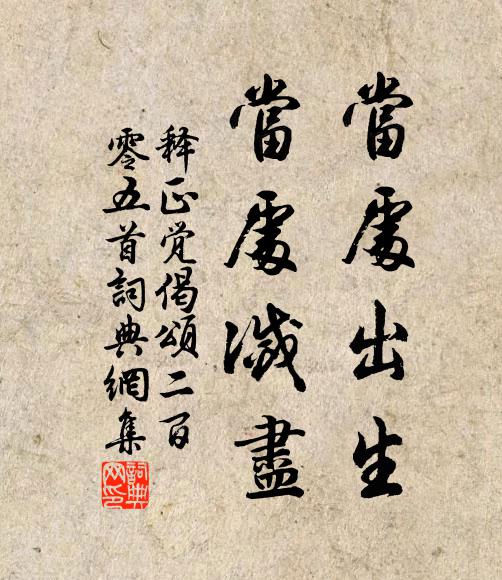 當處出生
當處滅盡
释正觉偈頌二百
零五首詞典網集
詞典网印